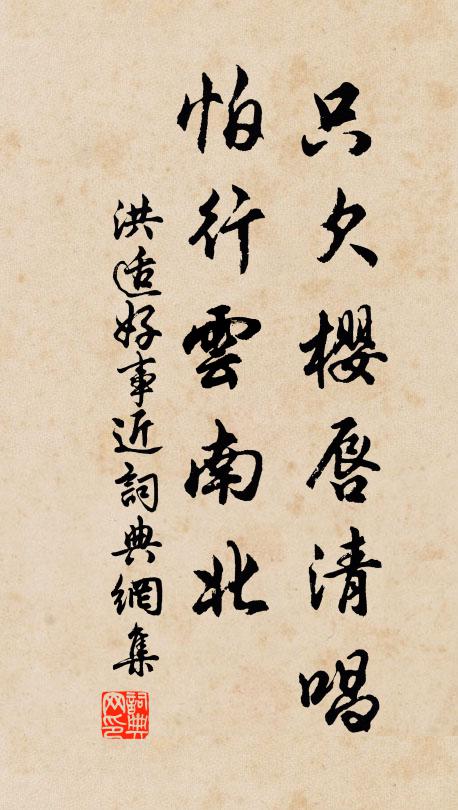 只欠櫻唇清唱
怕行雲南北
洪适好事近詞典網集
詞典网印